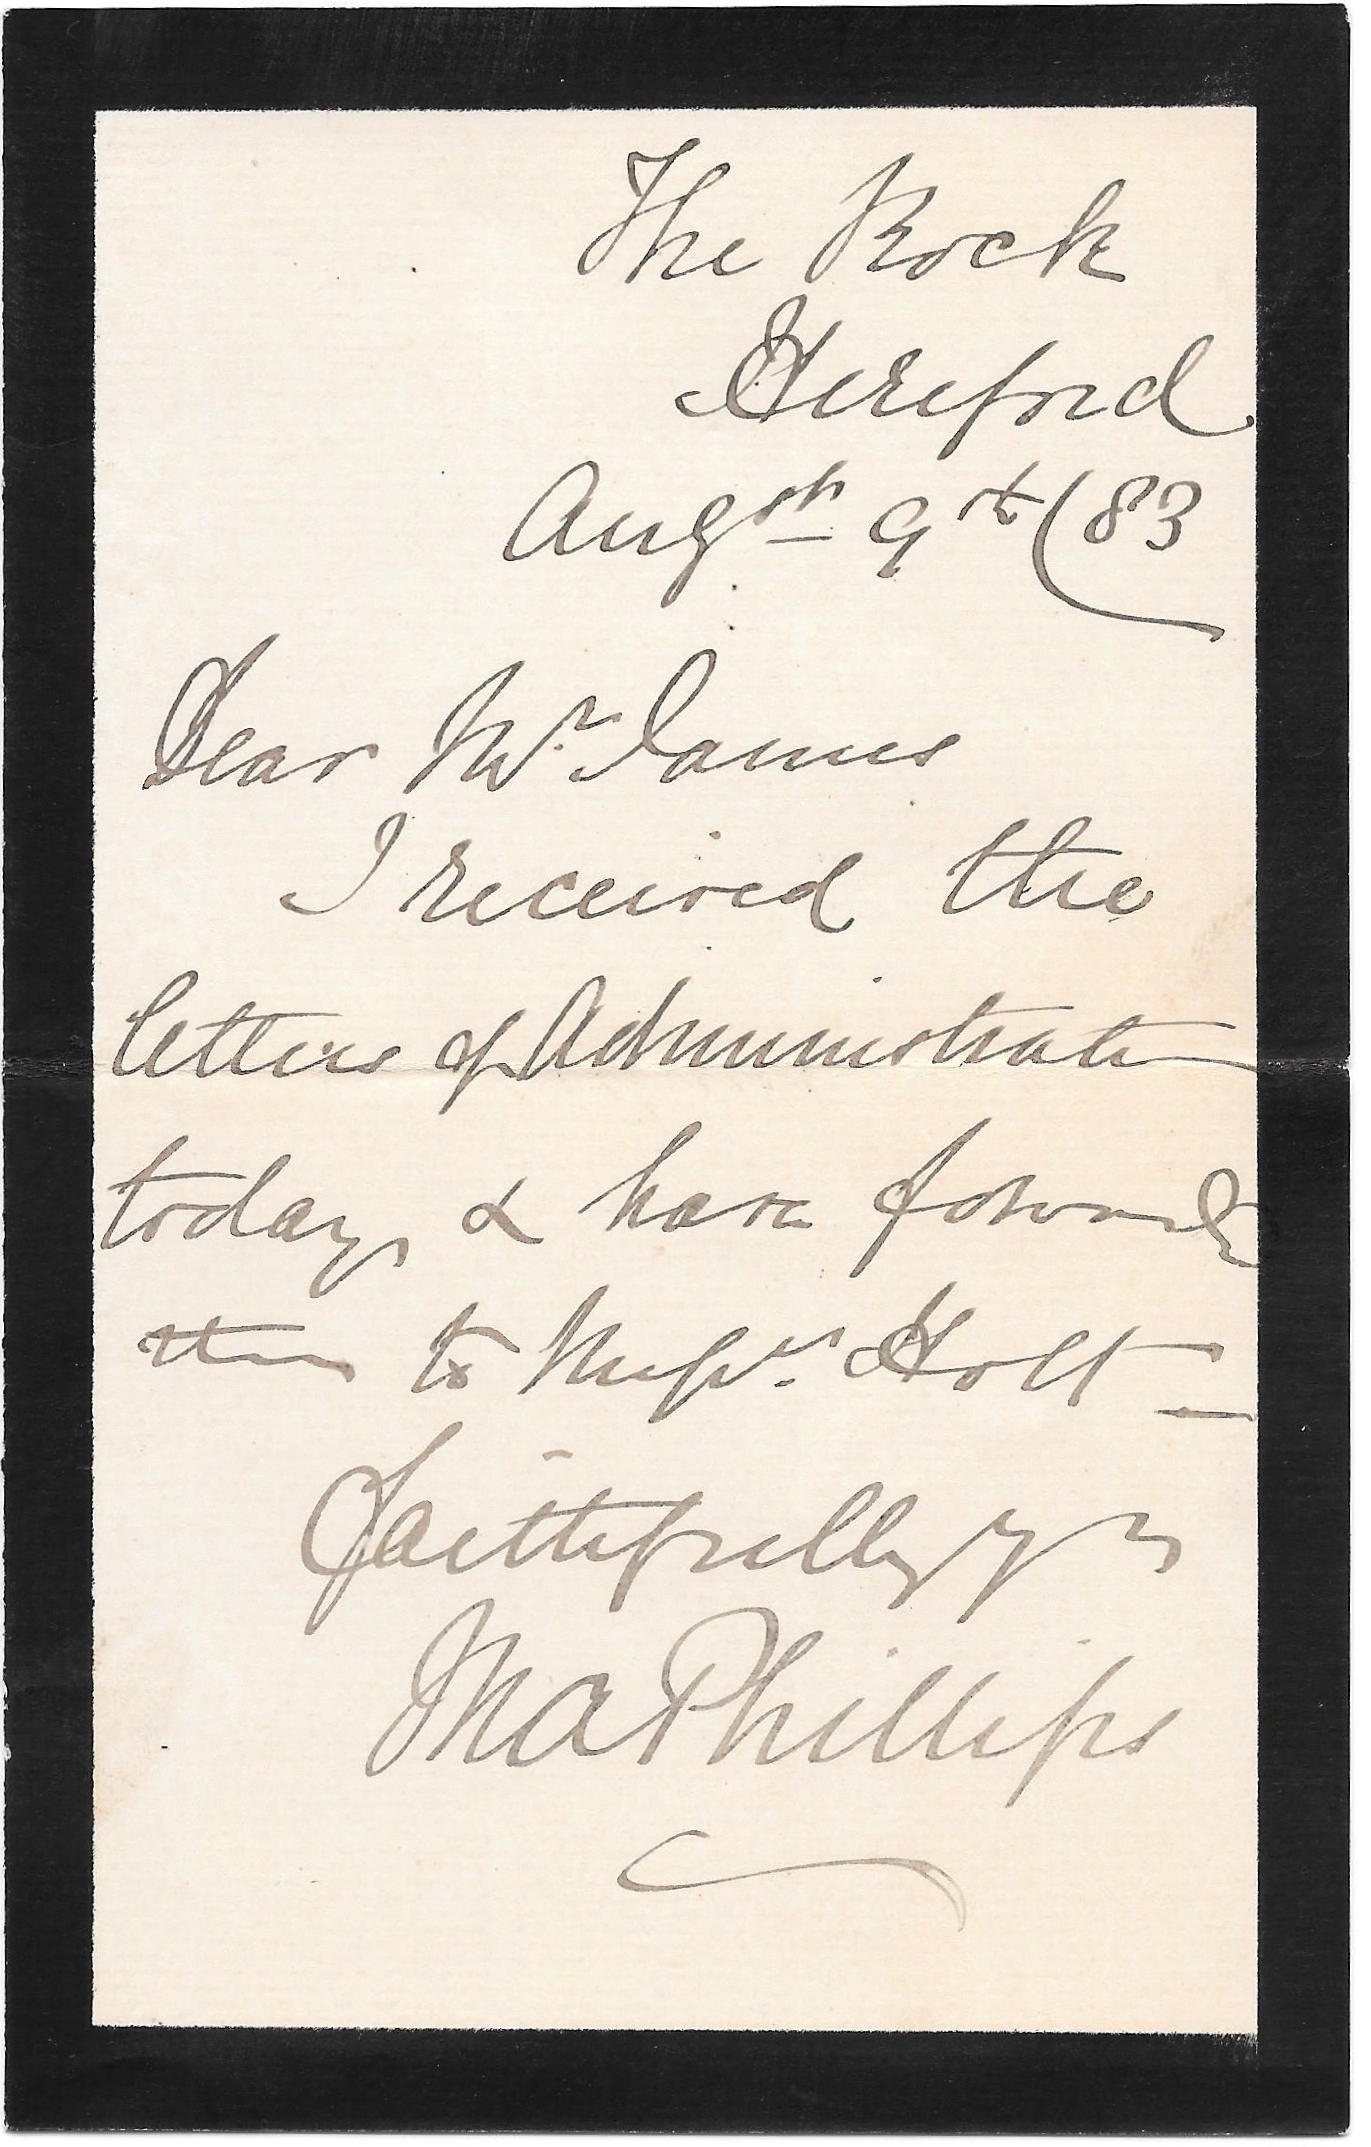 The Rock
Hereford
Augst 9th /83
Dear Mr. James
I received the
letters of Administration
today, & have forwarded
them to Messrs. Holt
Faithfully yrs
MAPhillips